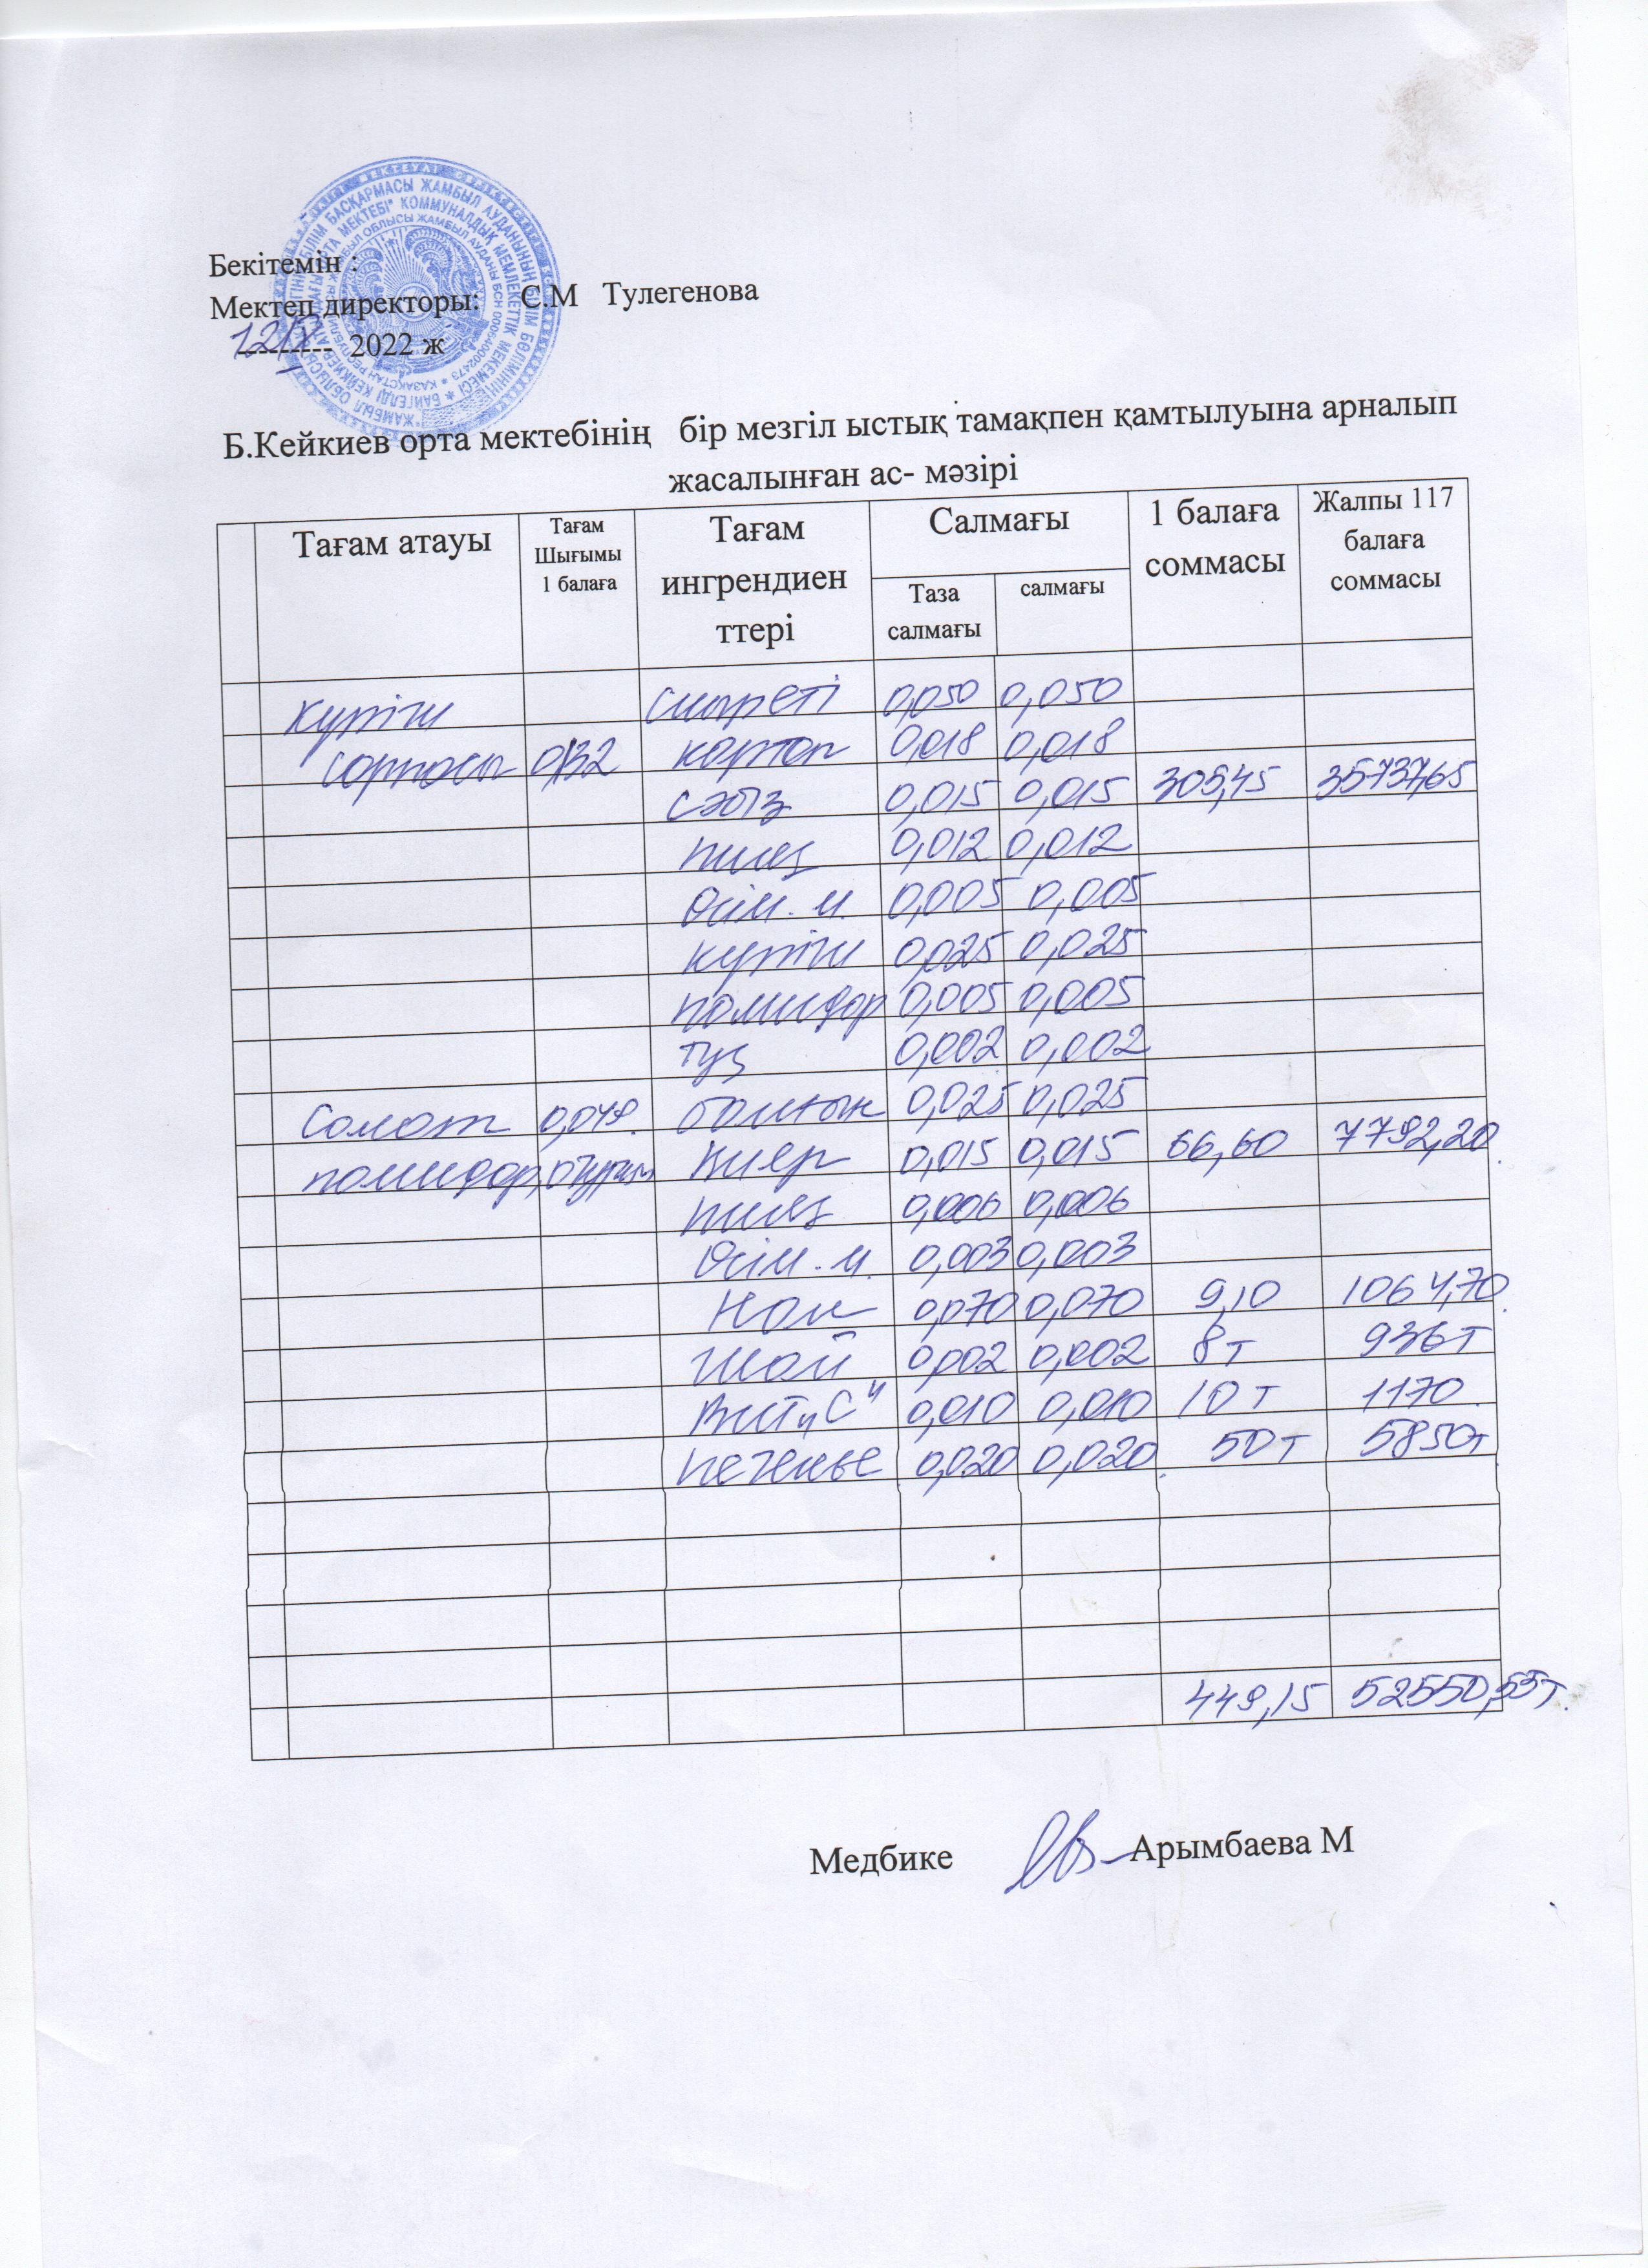 Бекітемін :
Мектеп директоры: С.М Тулегенова
12/ --------- 2022 ж
Б.Кейкиев орта мектебінің бір мезгіл ыстық тамақпен қамтылуына арналып
жасалынған ас- мәзірі
Тағам атауы Тағам Шығымы 1 балаға Тағам ингрендиен ттері Салмағы 1 балаға соммасы Жалпы 117 балаға соммасы
Таза салмағы салмағы
күріш сиыр еті 0,050 0,050
сорпасы 0,132 картоп 0,018 0,018
сәбіз 0,015 0,015 305,45 35737,65
пияз 0,012 0,012
Өсім. м. 0,005 0,005
күріш 0,025 0,025
помидор 0,005 0,005
тұз 0,002 0,002
Салат 0,049. 0,025 0,025
помидор, Кияр 0,015 0,015 66,60 7792,20
пияз 0,006 0,006
Өсім. м. 0,003 0,003
Нан 0,070 0,070 9,10 1064,70
Шай 0,002 0,002 8 т 936 т
Вит "С" 0,010 0,010 10 т 1170
печенье 0,020 0,020 50 т 5850т
449,15 52550,55т.
Медбике Арымбаева М